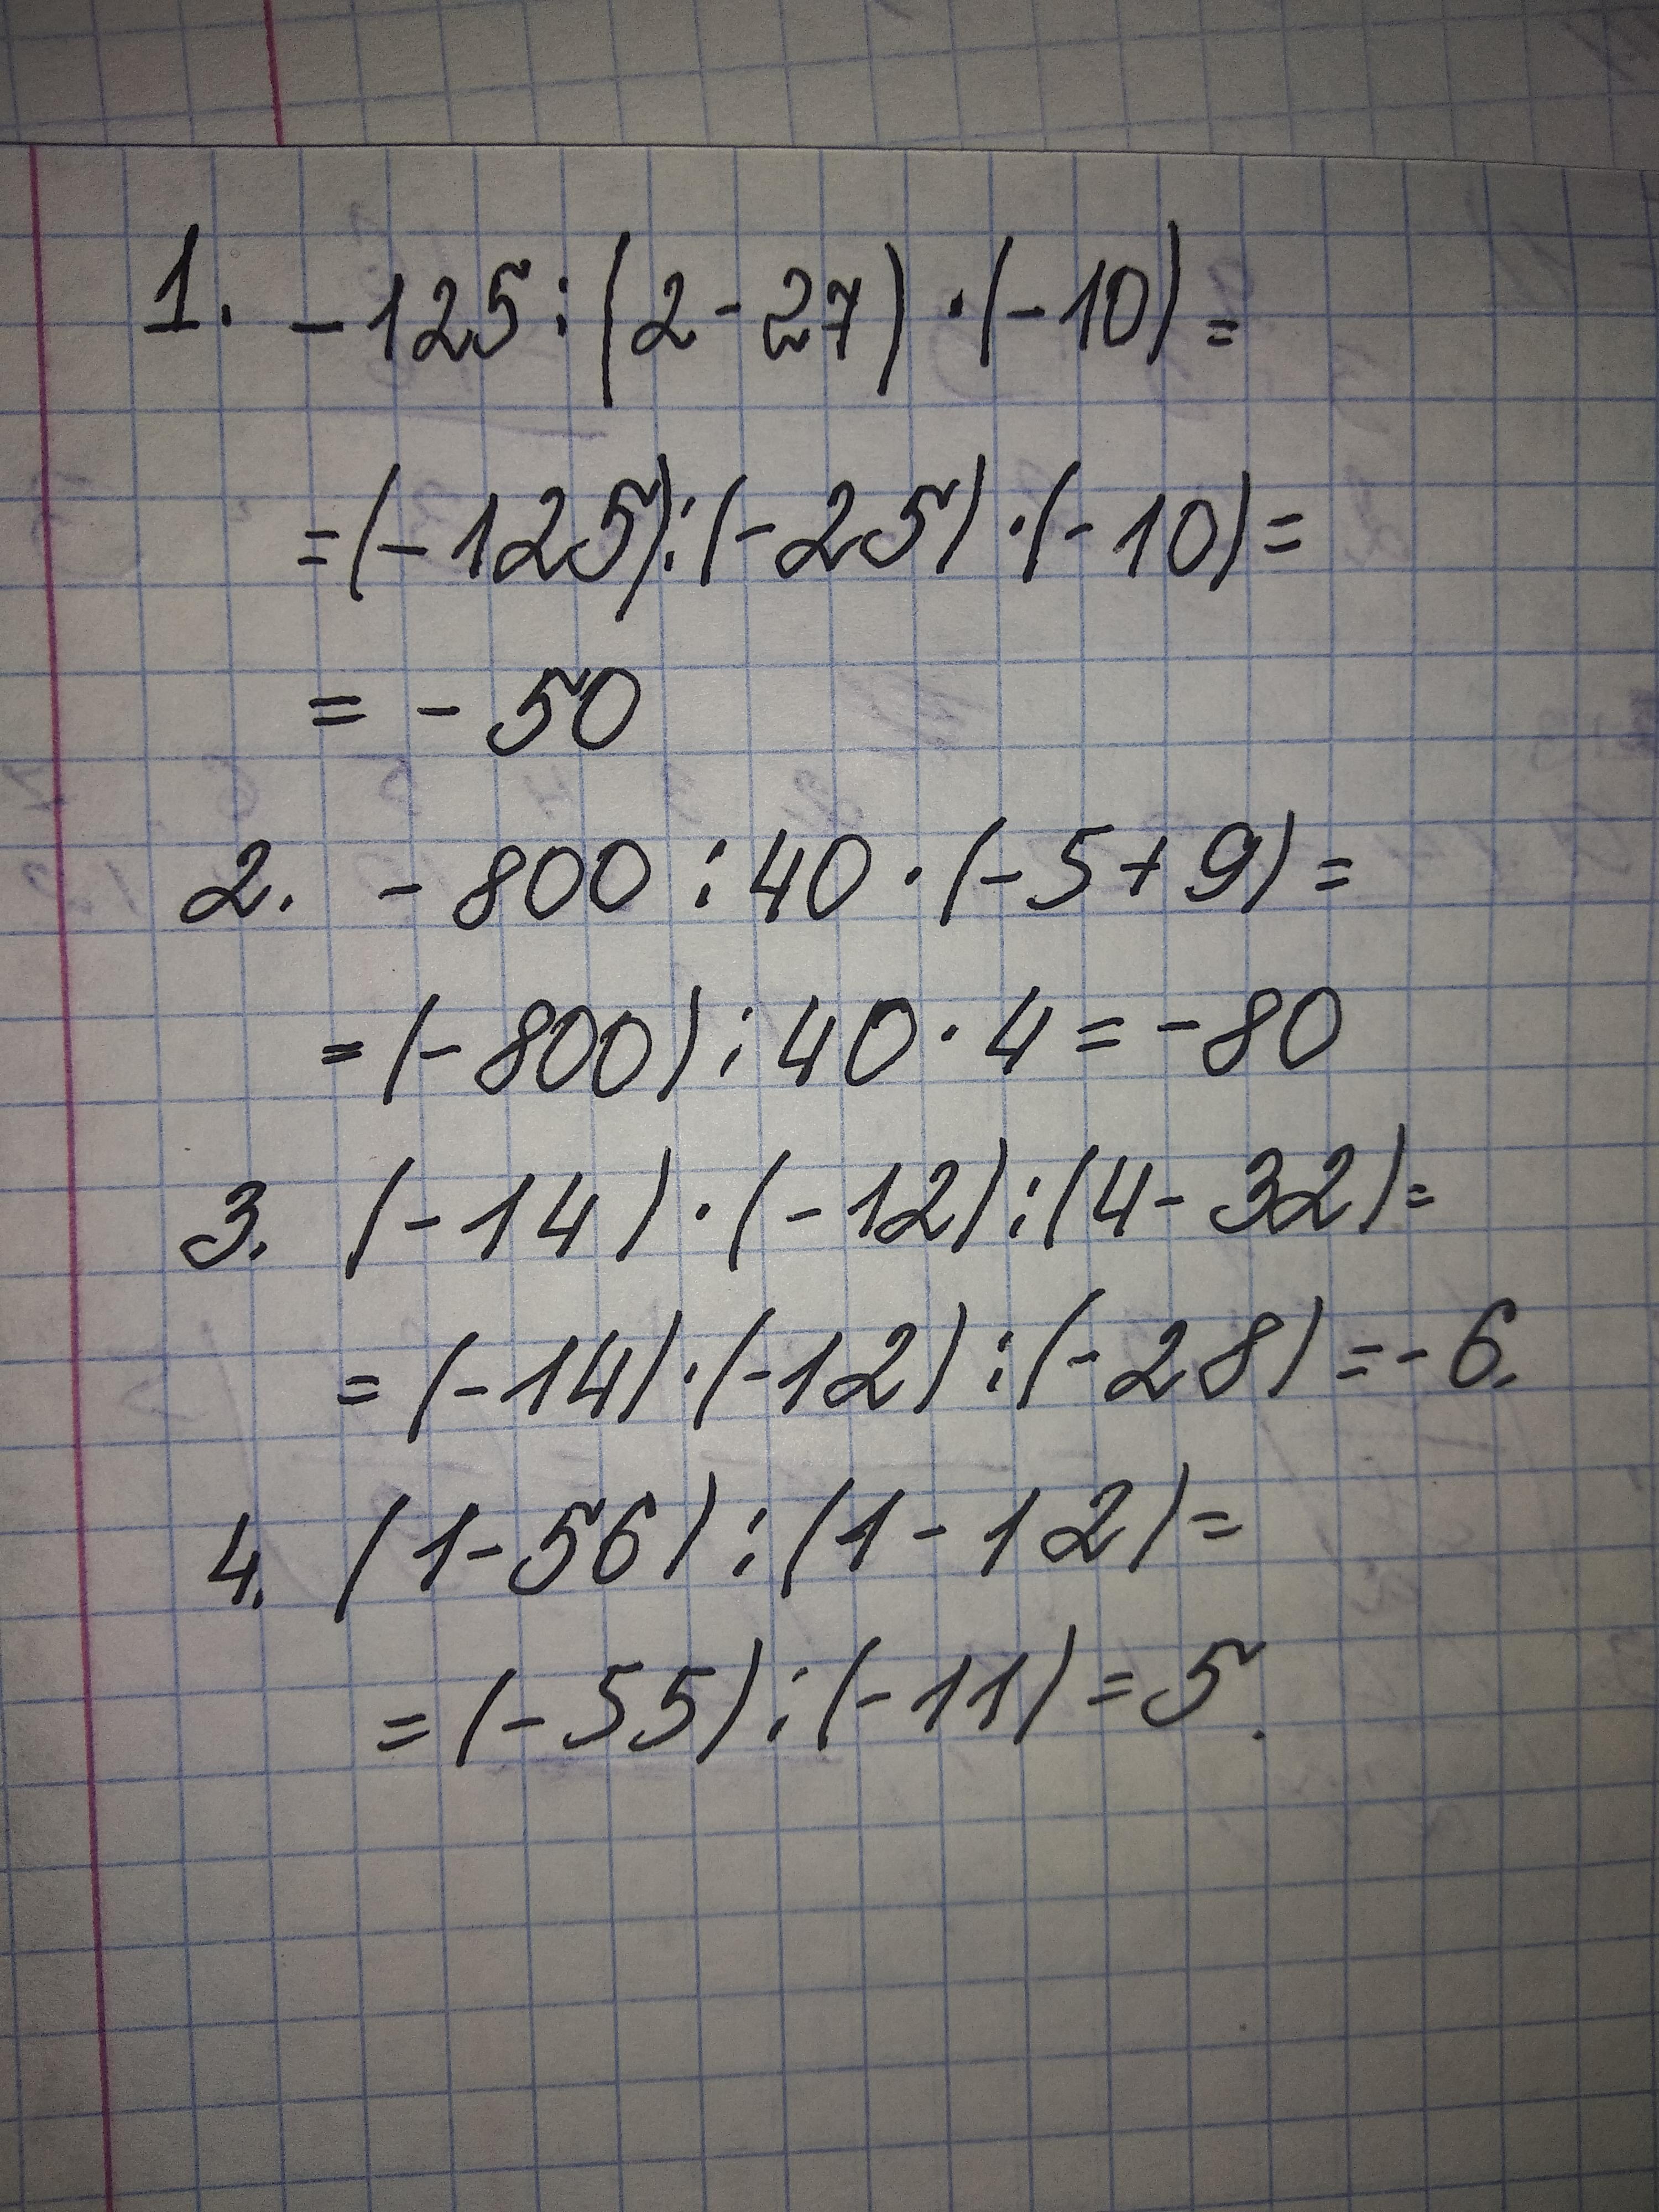 1. -125:(2-27)·(-10)=
=(-125):(-25)·(-10)=
= -50
2. -800:40·(-5+9)=
=(-800):40·4=-80
3. (-14)·(-12):(4-32)=
=(-14)·(-12):(-28)=-6.
4. (1-56):(1-12)=
=(-55):(-11)=5.